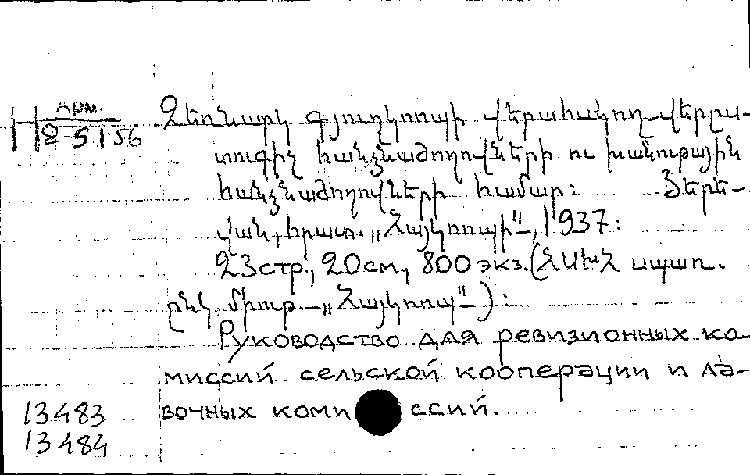 Арм.
2-5156
Ձեռնարկ գյուղկոոպի վերահսկող-վերըս-
տուգիչ հանձնաժողովների ու խանութային
հանձնաժողովների համար: Յերե-
վան, հրատ. „Հայկոոպի“, 1937:
23стр., 20см, 800 экз. (ՀՍԽՀ սպառ.
ընկ. միութ.-„Հայկոոպ“):
Руководство для ревизионных ко-
миссий сельской кооперации и ла-
вочных комиссий.
13483
13484